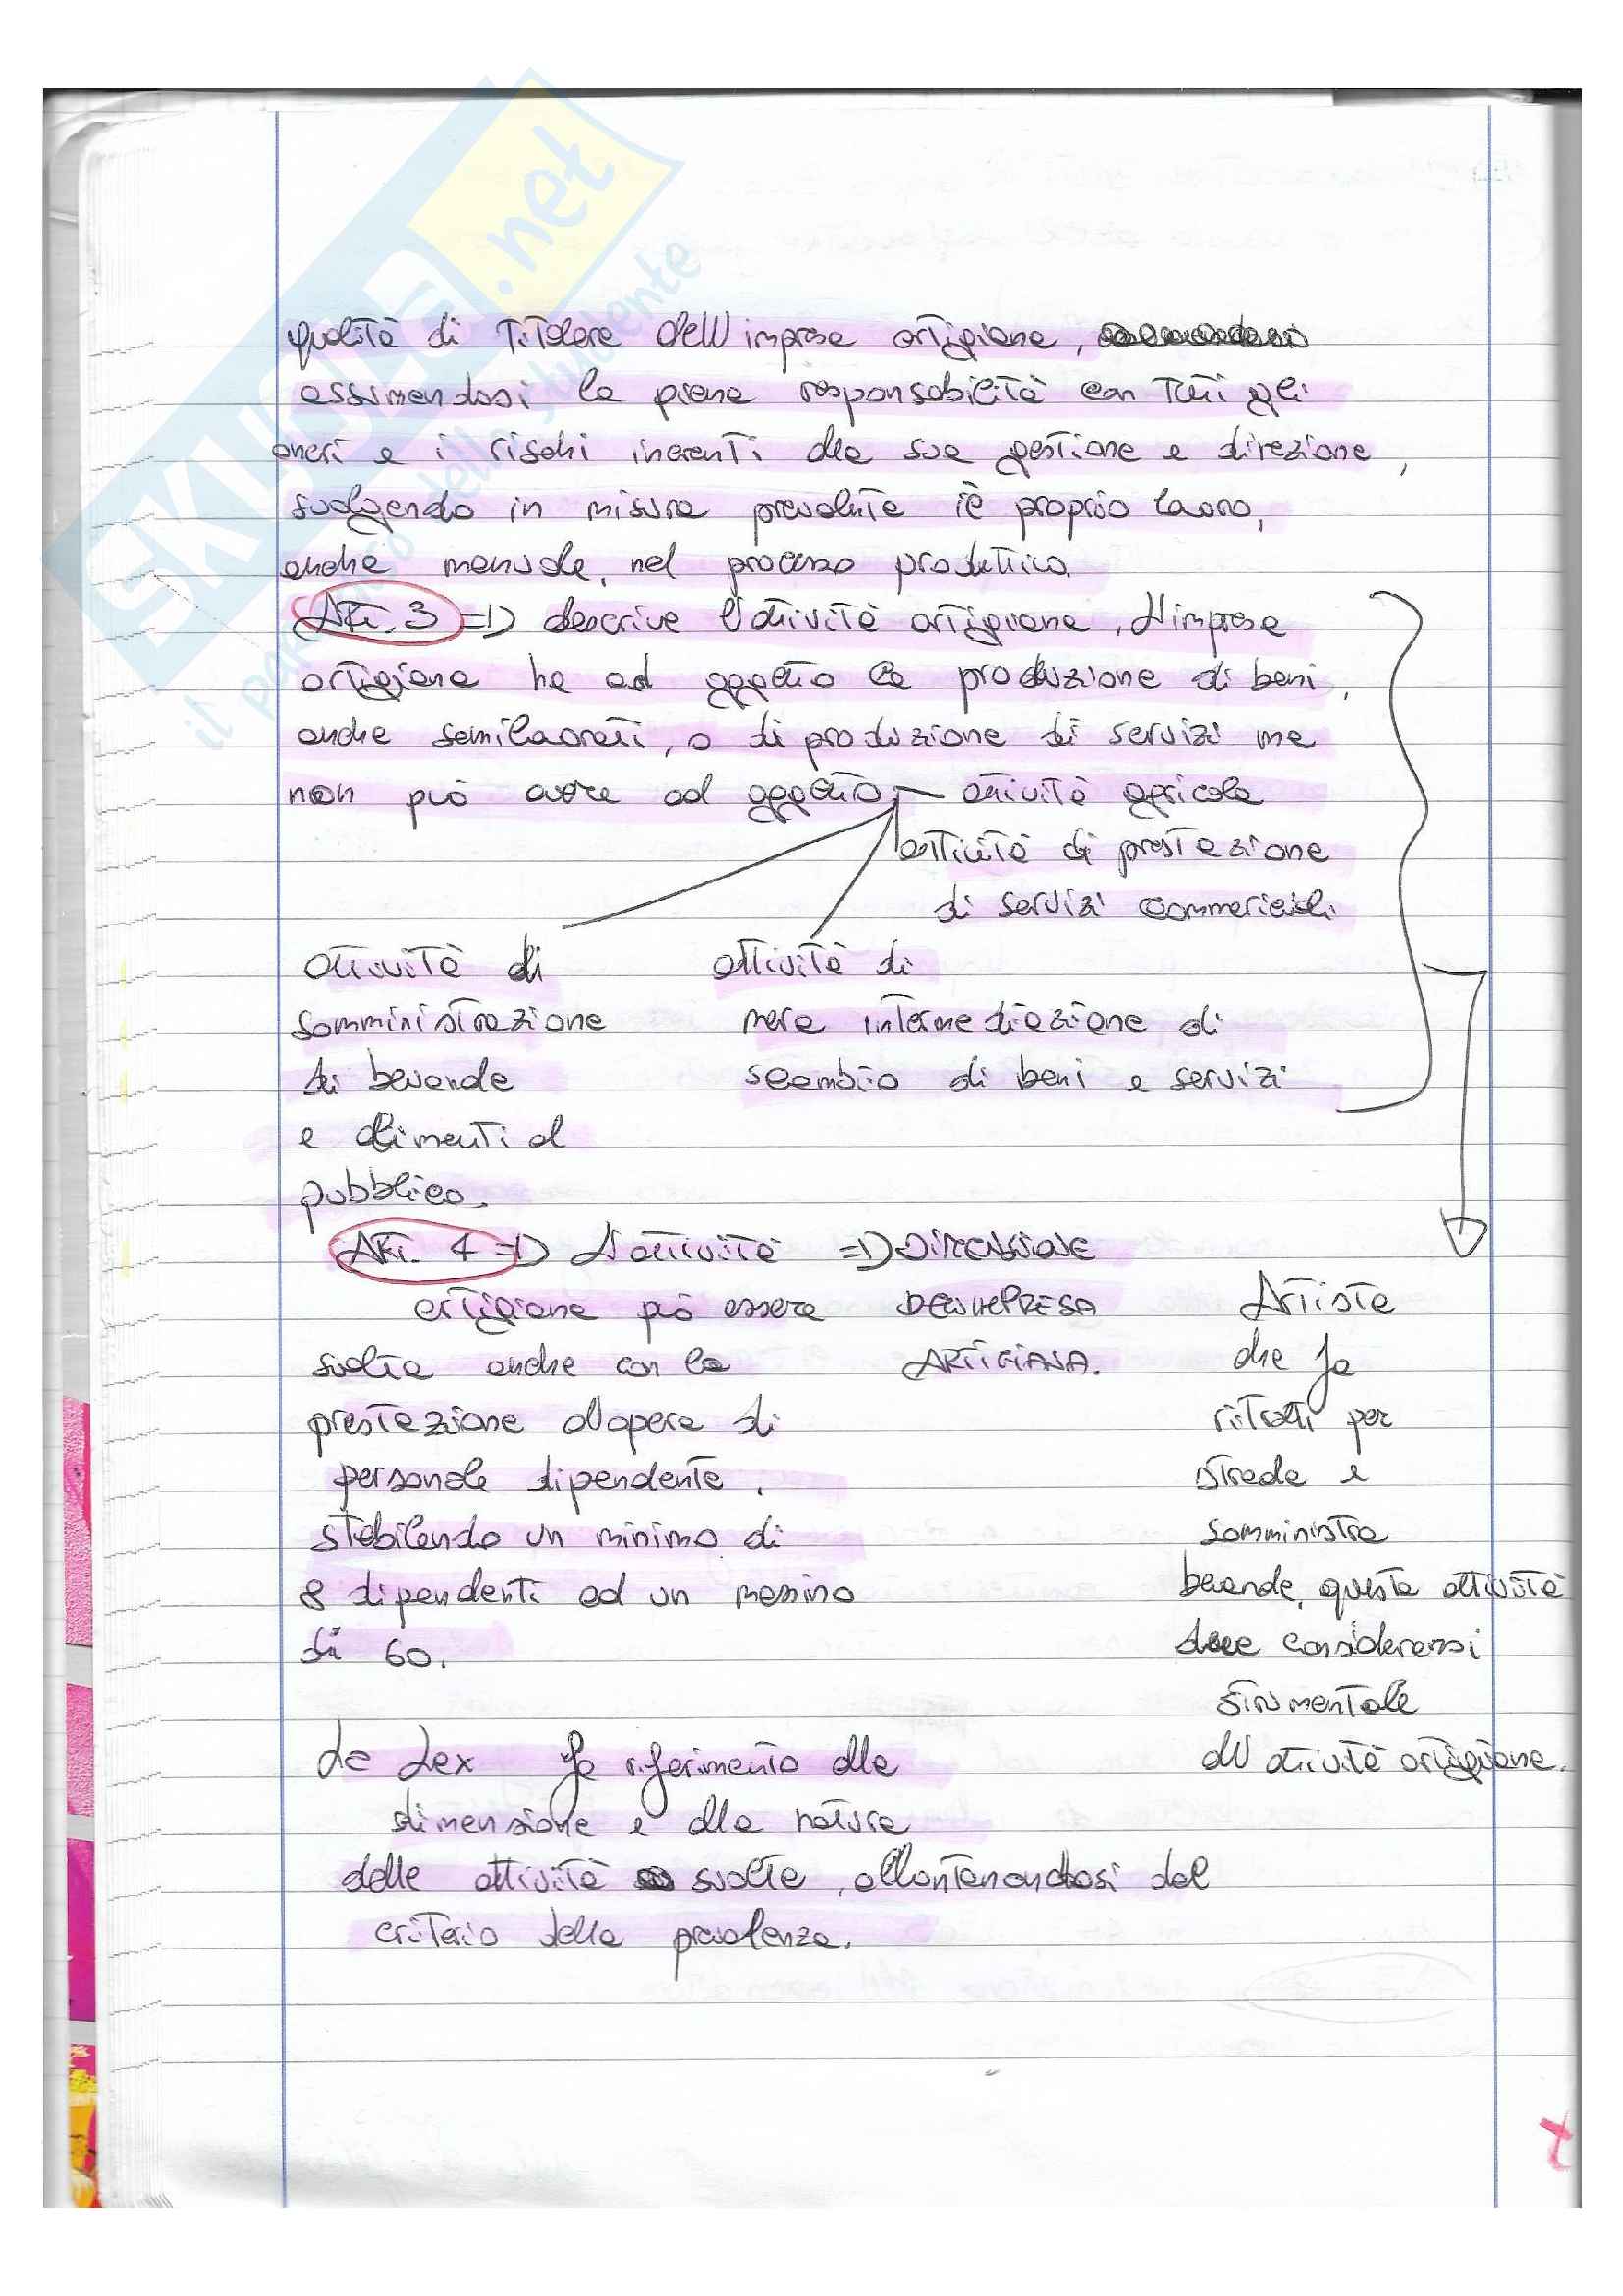 SKUOLA.net
il paradiso dello studente
qualità di Titolare dell'impresa artigiana,
assumendosi la piena responsabilità con Tutti gli
oneri e i rischi inerenti alla sua gestione e direzione,
svolgendo in misura prevalente il proprio lavoro,
anche manuale, nel processo produttivo.
ART. 3 => descrive l'attività artigiana, L'impresa
artigiana ha ad oggetto la produzione di beni,
anche semilavorati, o di produzione di servizi ma
non può avere ad oggetto attività agricola
attività di prestazione
di servizi commerciali
attività di
somministrazione
di bevande
e alimenti al
pubblico.
attività di
mera intermediazione di
scambio di beni e servizi
ART. 4 => L'attività
artigiana può essere
svolta anche con la
prestazione d'opera di
personale dipendente.
stabilendo un minimo di
8 dipendenti ad un massimo
di 60.
=> DIMENSIONE
DELL'IMPRESA
ARTIGIANA.
Artista
che fa
ritratti per
strada e
somministra
bevande, questa attività
deve considerarsi
strumentale
all'attività artigiana.
La Lex fa riferimento alla
dimensione e alla natura
delle attività svolte, allontanandosi dal
criterio della prevalenza.